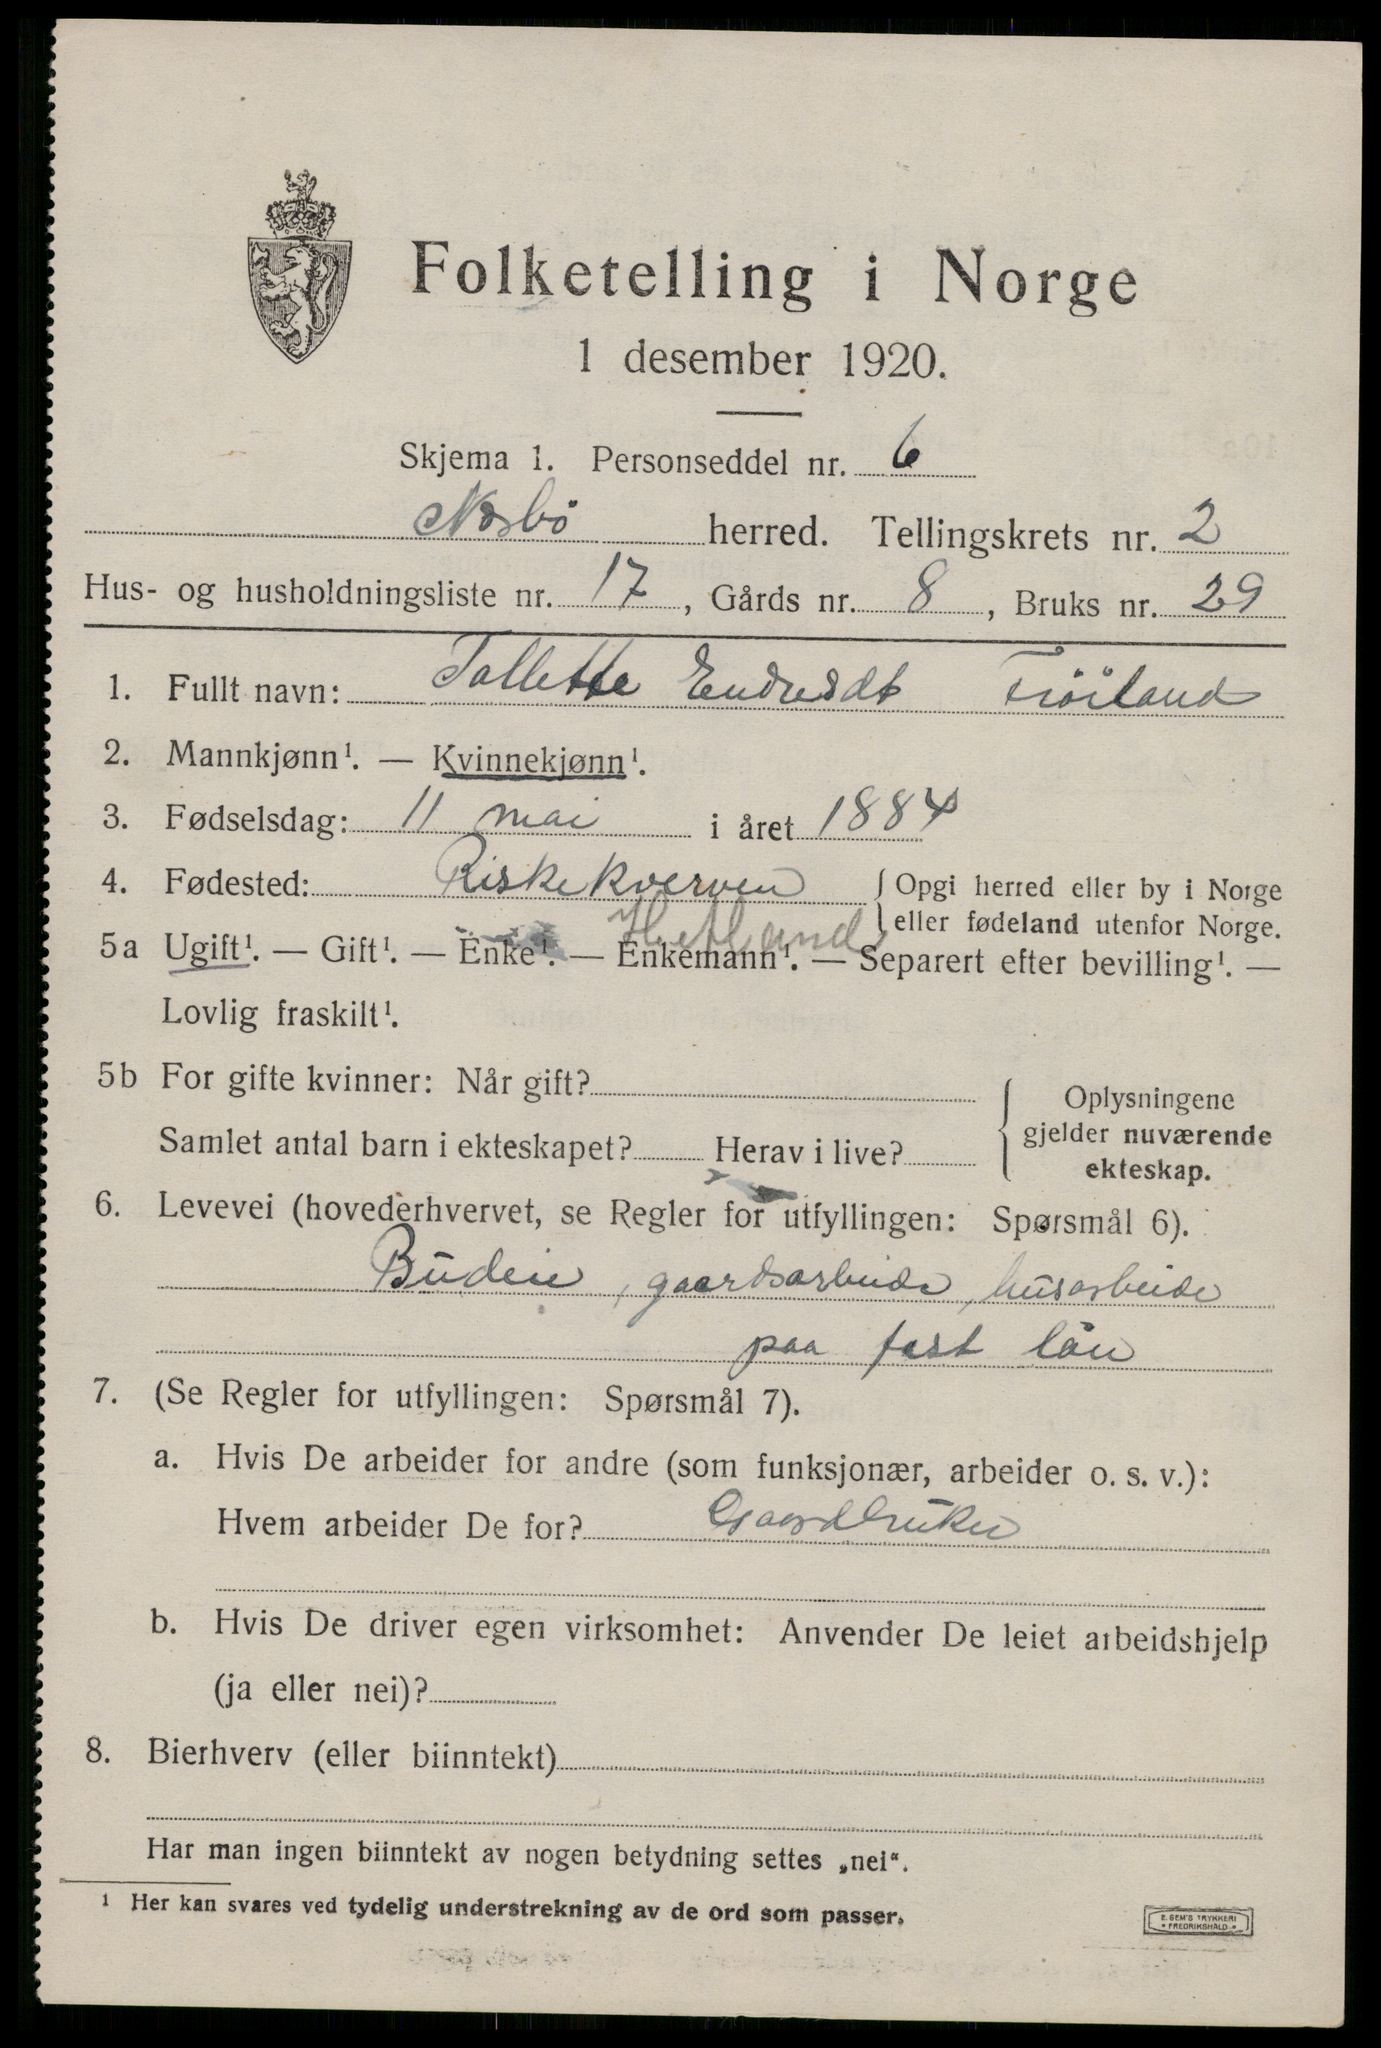 Folketelling i Norge
1 desember 1920.
Skjema 1. Personseddel nr. 6
Nærbø herred. Tellingskrets nr. 2
Hus- og husholdningsliste nr. 17, Gårds nr. 8, Bruks nr. 29
1. Fullt navn: Tallette Endresdt Tröiland
2. Mannkjønn¹. — Kvinnekjønn¹.
3. Fødselsdag: 11 mai i året 1884
4. Fødested: Riskekverven { Opgi herred eller by i Norge
eller fødeland utenfor Norge.
Hetland
5a Ugift¹. — Gift¹. — Enke¹. — Enkemann¹. — Separert efter bevilling¹. —
Lovlig fraskilt¹.
5b For gifte kvinner: Når gift?
Samlet antal barn i ekteskapet? Herav i live?
{ Oplysningene
gjelder nuværende
ekteskap.
6. Levevei (hovederhvervet, se Regler for utfyllingen: Spørsmål 6).
Budeie, gaardsarbeide, husarbeide
paa fast lön
7. (Se Regler for utfyllingen: Spørsmål 7).
a. Hvis De arbeider for andre (som funksjonær, arbeider o. s. v.):
Hvem arbeider De for? Gaardbruker
b. Hvis De driver egen virksomhet: Anvender De leiet arbeidshjelp
(ja eller nei)?
8. Bierhverv (eller biinntekt)
Har man ingen biinntekt av nogen betydning settes „nei“.
¹ Her kan svares ved tydelig understrekning av de ord som passer.
E. SEM'S TRYKKERI
• FREDRIKSHALD •